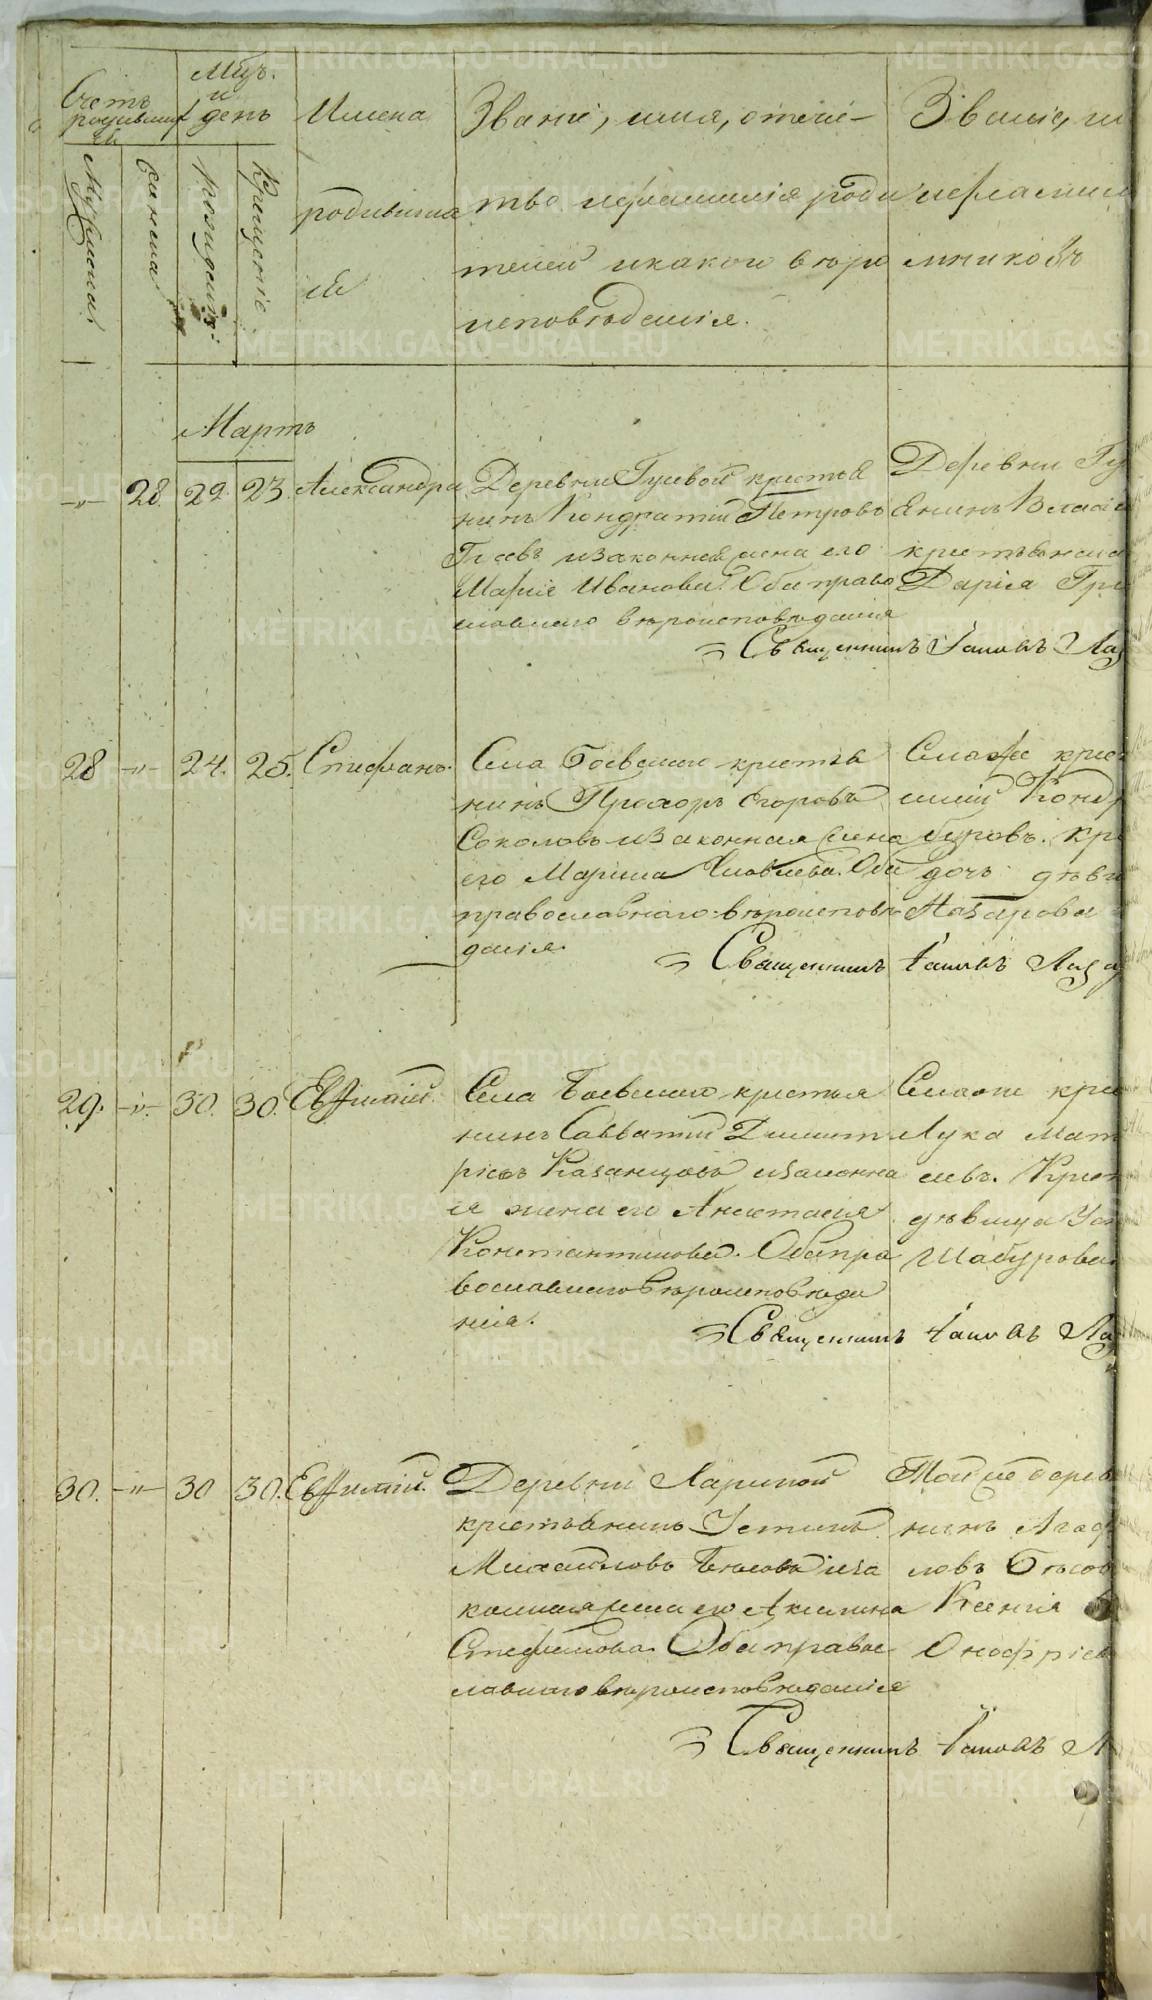 METRIKI.GASO-URAL.RU
Счетъ
родивших
ся
Мцъ.
и
день
Имена
родивших
ся
Званіе, имя, отече-
тво ифамилія роди
телей икакои вѣро
исповѣданія.
Званіе, и
ифамил
мниковъ
Мужеска
Женска
Рожденія
Крещеніе
Мартъ
-"- 28. 22. 23. Александра
Деревни Гусевой крестья
нинъ Кондратій Петровъ
Гусевъ изаконная жена его
Марія Иванова. Оба право
славнаго вѣроисповѣданія
Деревни Гу
Янинъ Власі
крестьянска
Дарія Гри
Священникъ Іаковъ Лаз
28 -"- 24. 25. Стефанъ.
Села Боевскаго крестья
нинъ Прохоръ Егоровъ
Соколовъ изаконная жена
его Марина Яковлева. Оба
православнаго вѣроисповѣ
данія.
Тогоже крес
Кондр
буровъ. Кре
дочь дѣви
Назарова
Священникъ Іаковъ Лаза
29. -"- 30. 30. Евѳимій.
Села Боевскаго крестья
нинъ Савватій Димит
ріевъ Казанцовъ изаконна
я жена его Анастасія
Константинова. Оба пра
вославнаго вѣроисповѣда
нія.
Села оги кре
Лука Мат
евъ. Крест
дѣвица Уст
Шабурова
Священникъ Іаковъ Лаз
30. -"- 30 30. Евѳимій.
Деревни Лариной
крестьянинъ Устинъ
Михаиловъ Бѣсовъ иза
конная жена его Акилина
Стефанова. Оба правос
лавнаго вѣроисповѣданія
Той же дерев
нинъ Агаф
ловъ Бѣсов
Ксенія
Онофріев
Священникъ Іаковъ Л